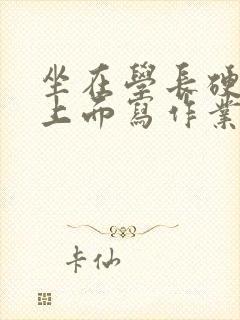 坐在學長硬
上而寫作業
卡仙